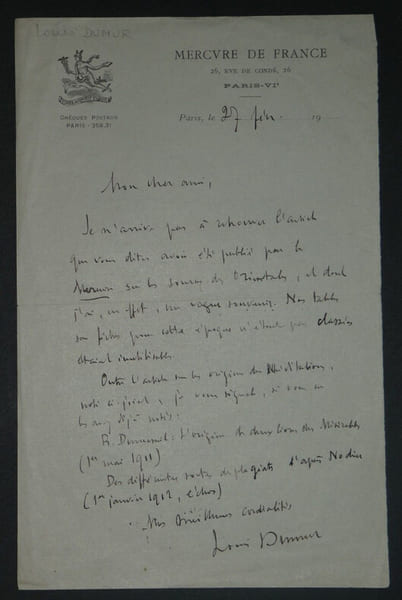 LOUIS DUMUR
MERCVRE DE FRANCE
26, RVE DE CONDÉ, 26
PARIS-VIᵉ
CHÈQUES POSTAUX
PARIS - 259.31
Paris, le 27 fév. 19
Mon cher ami,
Je n'arrive pas à retrouver l'article
que vous dites avoir été publié par le
Mercure sur les sources des Orientales, et dont
j'ai, en effet, un vague souvenir. Nos tables
sur fiches pour cette époque n'étant pas classées
étant inutilisables.
Outre l'article sur les origines des Méditations,
noté ci-joint, je vous signale, si vous ne
les avez déjà notés :
L'origine de deux livres des Misérables
(1er mai 1911)
Des différentes sortes de plagiats d'après Nodier
(1er janvier 1912, échos)
Mes meilleures cordialités
Louis Dumur